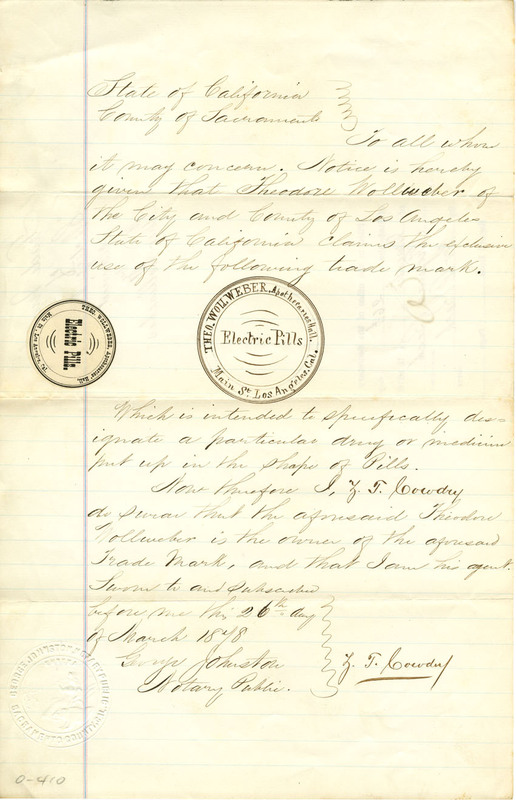 State of California
County of Sacramento
To all whom
it may concern. Notice is hereby
given that Theodore Wollweber of
the City and County of Los Angeles
State of California claims the exclusive
use of the following trade mark.
THEO. WOLLWEBER, Apothecaries Hall.
Electric Pills
Main St. Los Angeles, Cal.
THEO. WOLLWEBER, Apothecaries Hall.
Electric Pills
Main St. Los Angeles, Cal.
Which is intended to specifically des=
ignate a particular drug or medicine
put up in the shape of Pills.
Now therefore I, Z. T. Cowdry
do swear that the aforesaid Theodore
Wollweber is the owner of the aforesaid
Trade Mark, and that I am his agent.
Sworn to and subscribed
before me this 26th day
of March 1878
Johnston
Z. T. Cowdry
Notary Public.
0-410